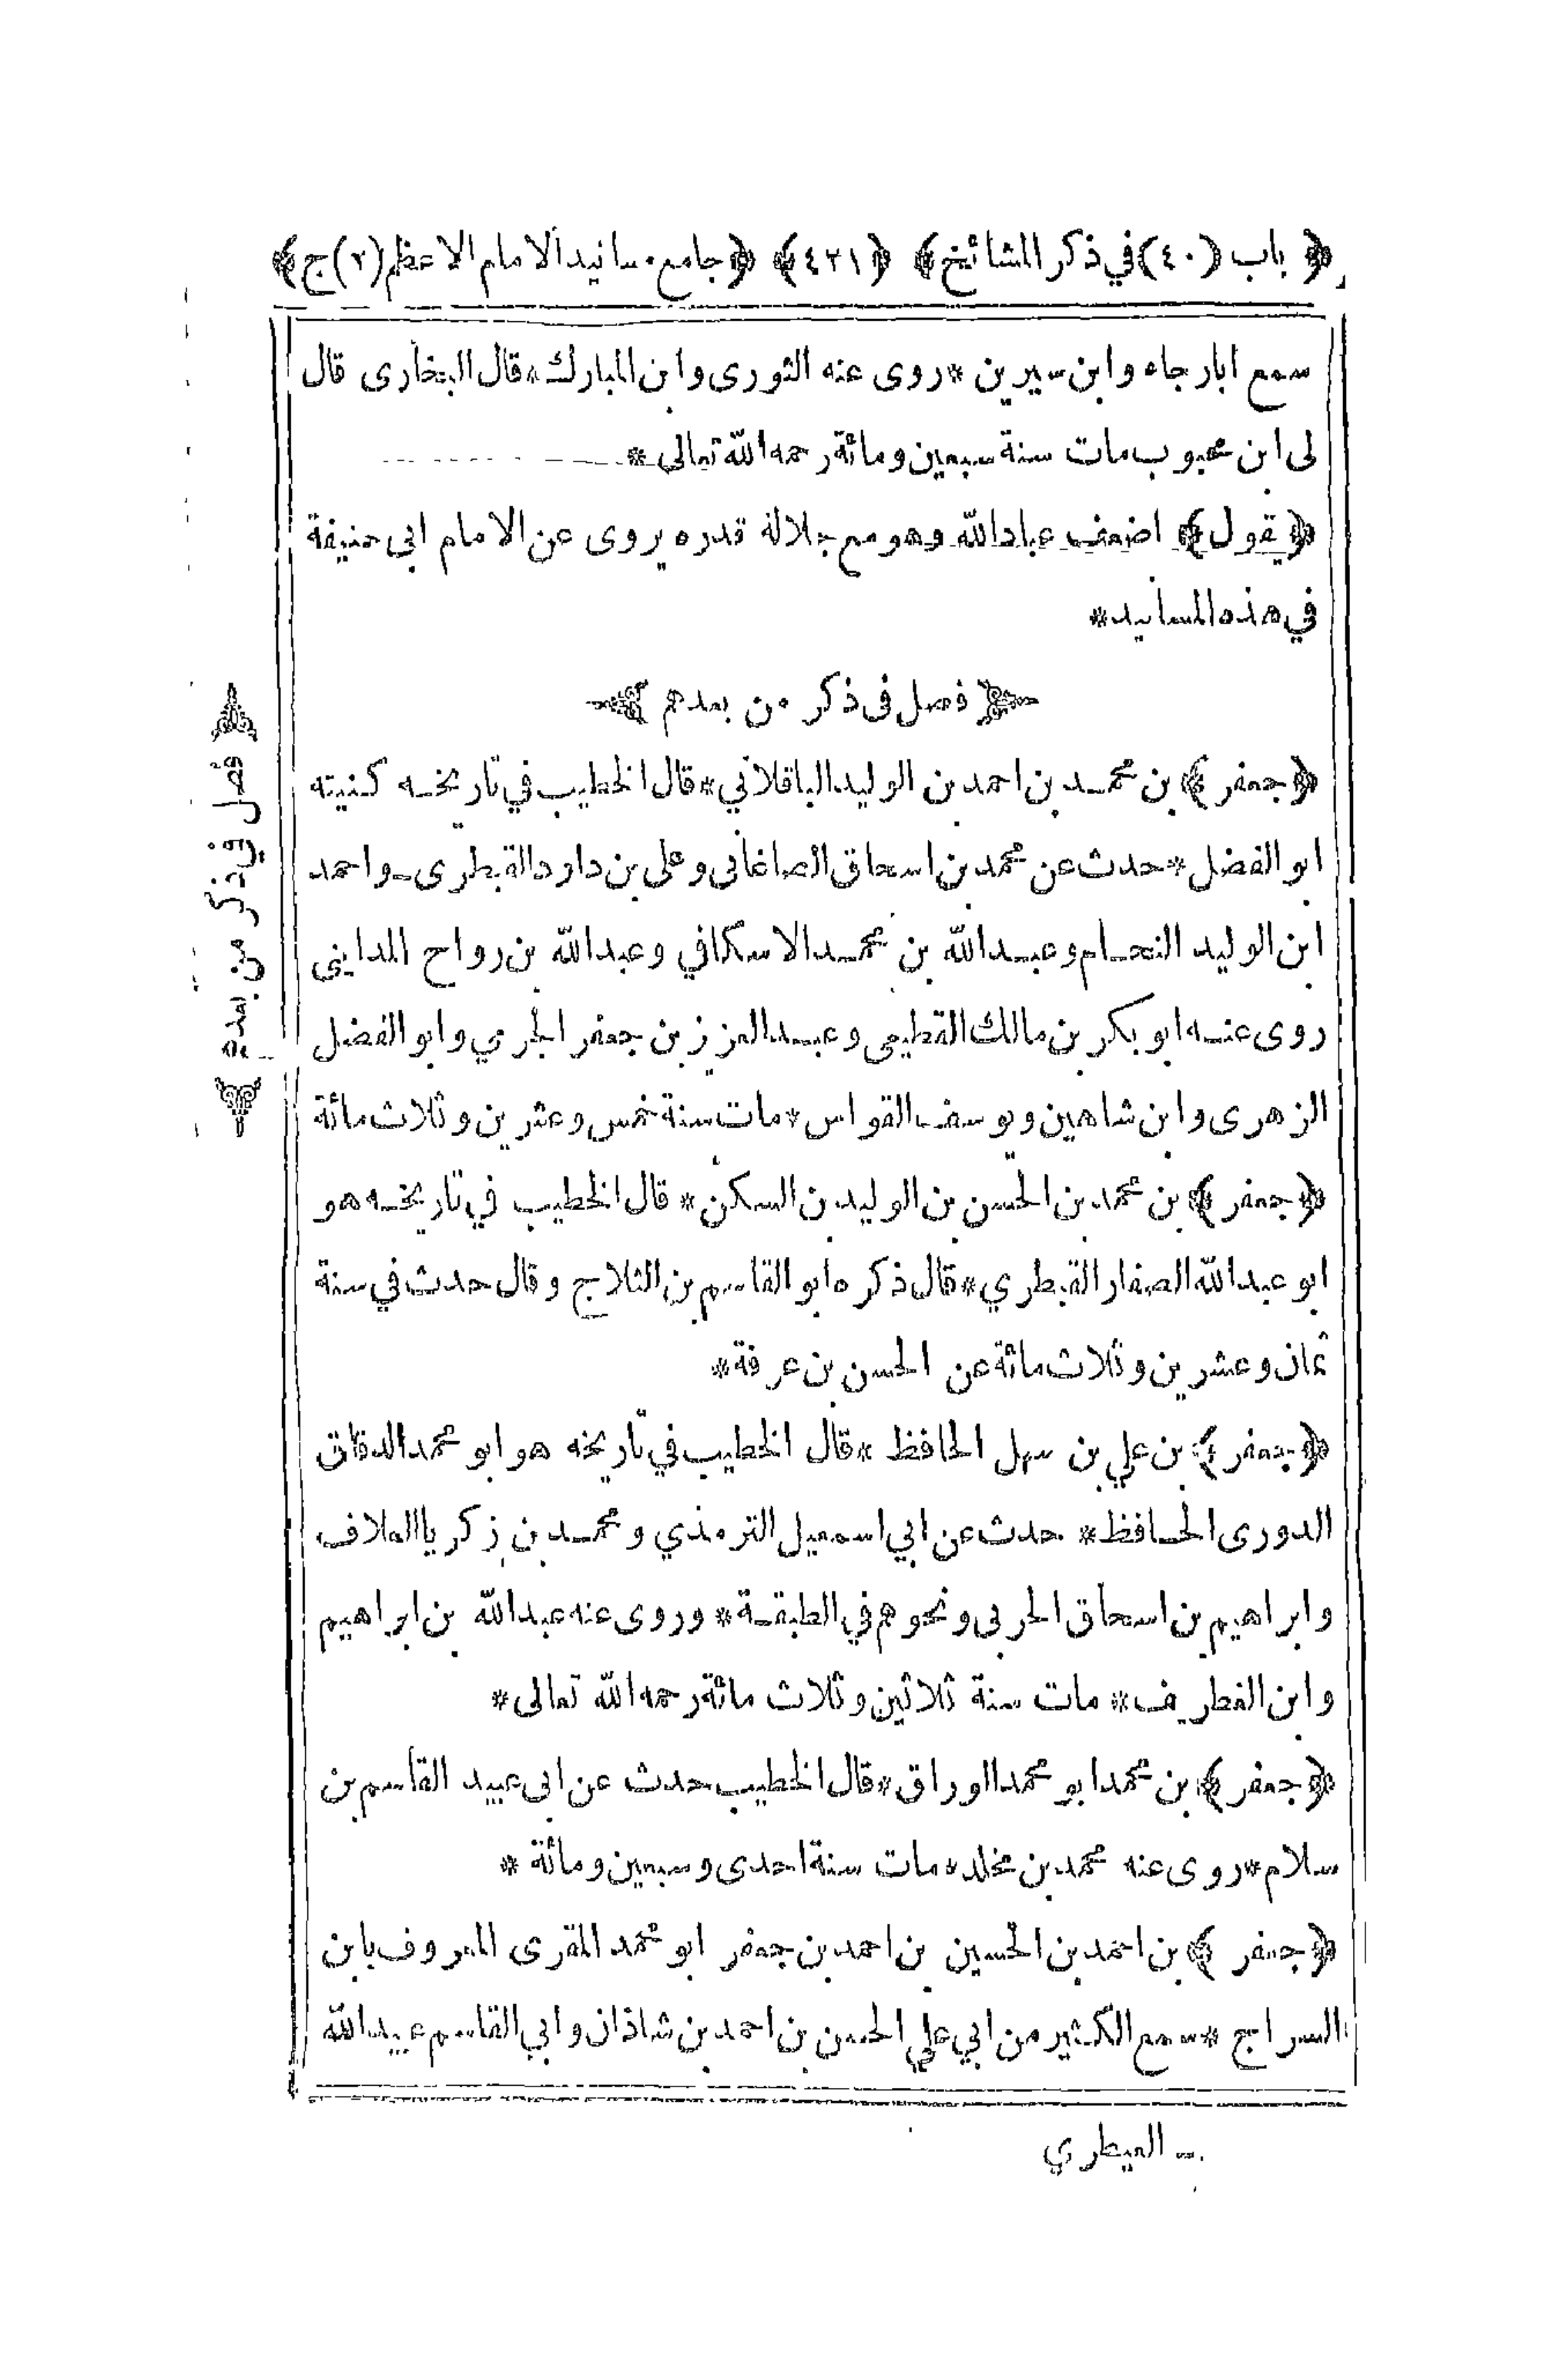 ﴿ باب (٤٠) في ذكر المشائخ ﴾ ﴿ ٤٢١ ﴾ ﴿ جامع مسانيد الامام الاعظم (٢) ج ﴾
سمع ابا رجاء وابن سيرين * روى عنه الثورى وابن المبارك * قال البخارى قال
لى ابن محبوب مات سنة سبعين ومائة رحمه الله تعالى *
﴿ يقول ﴾ اضعف عباد الله وهو مع جلالة قدره يروى عن الامام ابى حنيفة
في هذه المسانيد *
﴿ فصل فى ذكر من بعدهم ﴾
﴿ جعفر ﴾ بن محمد بن احمد بن الوليد الباقلاني * قال الخطيب في تاريخه كنيته
ابو الفضل * حدث عن محمد بن اسحاق الصاغانى وعلى بن داود القبطرى ـ واحمد
ابن الوليد النحام وعبد الله بن محمد الاسكافي وعبد الله بن رواح المداينى
روى عنه ابو بكر بن مالك القطيعى وعبد العزيز بن جعفر الجرمي وابو الفضل
الزهرى وابن شاهين ويوسف القواس * مات سنة خمس وعشرين وثلاث مائة
﴿ جعفر ﴾ بن محمد بن الحسن بن الوليد بن السكن * قال الخطيب في تاريخه هو
ابو عبد الله الصفار القبطري * قال ذكره ابو القاسم بن الثلاج وقال حدث في سنة
ثمان وعشرين وثلاث مائة عن الحسن بن عرفة *
﴿ جعفر ﴾ بن علي بن سهل الحافظ * قال الخطيب في تاريخه هو ابو محمد الدقاق
الدورى الحافظ * حدث عن ابي اسمعيل الترمذي ومحمد بن زكريا العلاف
وابراهيم بن اسحاق الحربى ونحوهم في الطبقة * وروى عنه عبد الله بن ابراهيم
وابن الغطريف * مات سنة ثلاثين وثلاث مائة رحمه الله تعالى *
﴿ جعفر ﴾ بن محمد ابو محمد الوراق * قال الخطيب حدث عن ابى عبيد القاسم بن
سلام * روى عنه محمد بن مخلد * مات سنة احدى وسبعين ومائة *
﴿ جعفر ﴾ بن احمد بن الحسين بن احمد بن جعفر ابو محمد المقرى المعروف بابن
السراج * سمع الكثير من ابي علي الحسن بن احمد بن شاذان وابي القاسم عبيد الله
ـ العيطري
﴿ فصل في ذكر من بعدهم ﴾